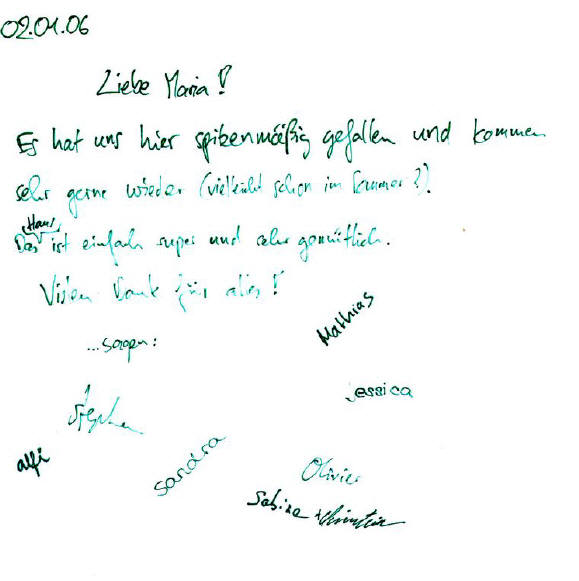 02.01.06
Liebe Maria!
Es hat uns hier spitzenmäßig gefallen und kommen
sehr gerne wieder (vielleicht schon im Sommer?).
Haus
Das ist einfach super und sehr gemütlich.
Vielen Dank für alles!
...sagen:
Mathias
Jessica
Stephan
alfi
Sandra
Olivier
Sabine + Christian